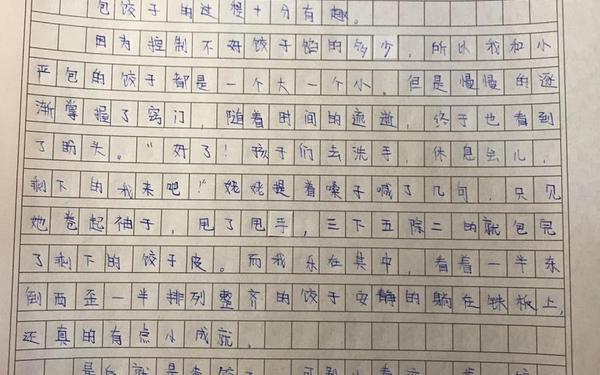 包饺子的过程十分有趣。
因为控制不好饺子馅的多少，所以我和小
平包的饺子都是一个大一个小。但是慢慢的逐
渐掌握了窍门，随着时间的流逝，终于也看到
了盼头。“好了！孩子们去洗手，休息会儿，
剩下的我来吧！”姥姥提着嗓子喊了几句，只见
她卷起袖子，甩了甩手，三下五除二的就包完
了剩下的饺子皮。而我乐在其中，看着一半东
倒西歪一半排列整齐的饺子安静的躺在铁板上，
还真的有点小成就。